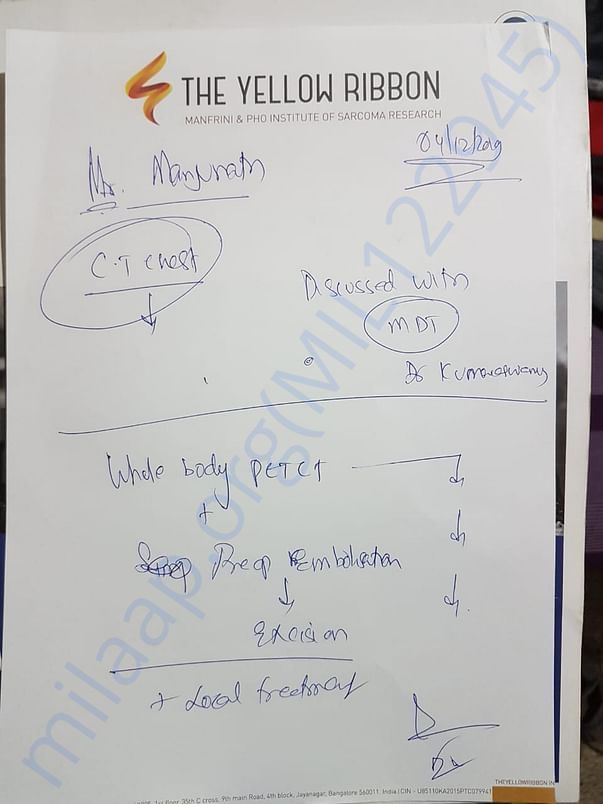 THE YELLOW RIBBON
MANFRINI & PHO INSTITUTE OF SARCOMA RESEARCH
04/12/2019
Mr. Manjunath
C.T Chest
Discussed with
MDT
Dr Kumaraswamy
Whole body PETCT
+
Preop Embolisation
Excision
+ Local treatment
THEYELLOWRIBBON.IN
1st floor, 35th C cross, 9th main Road, 4th block, Jayanagar, Bangalore 560011, India | CIN - U85110KA2015PTC079941
milaap.org(MIL122945)